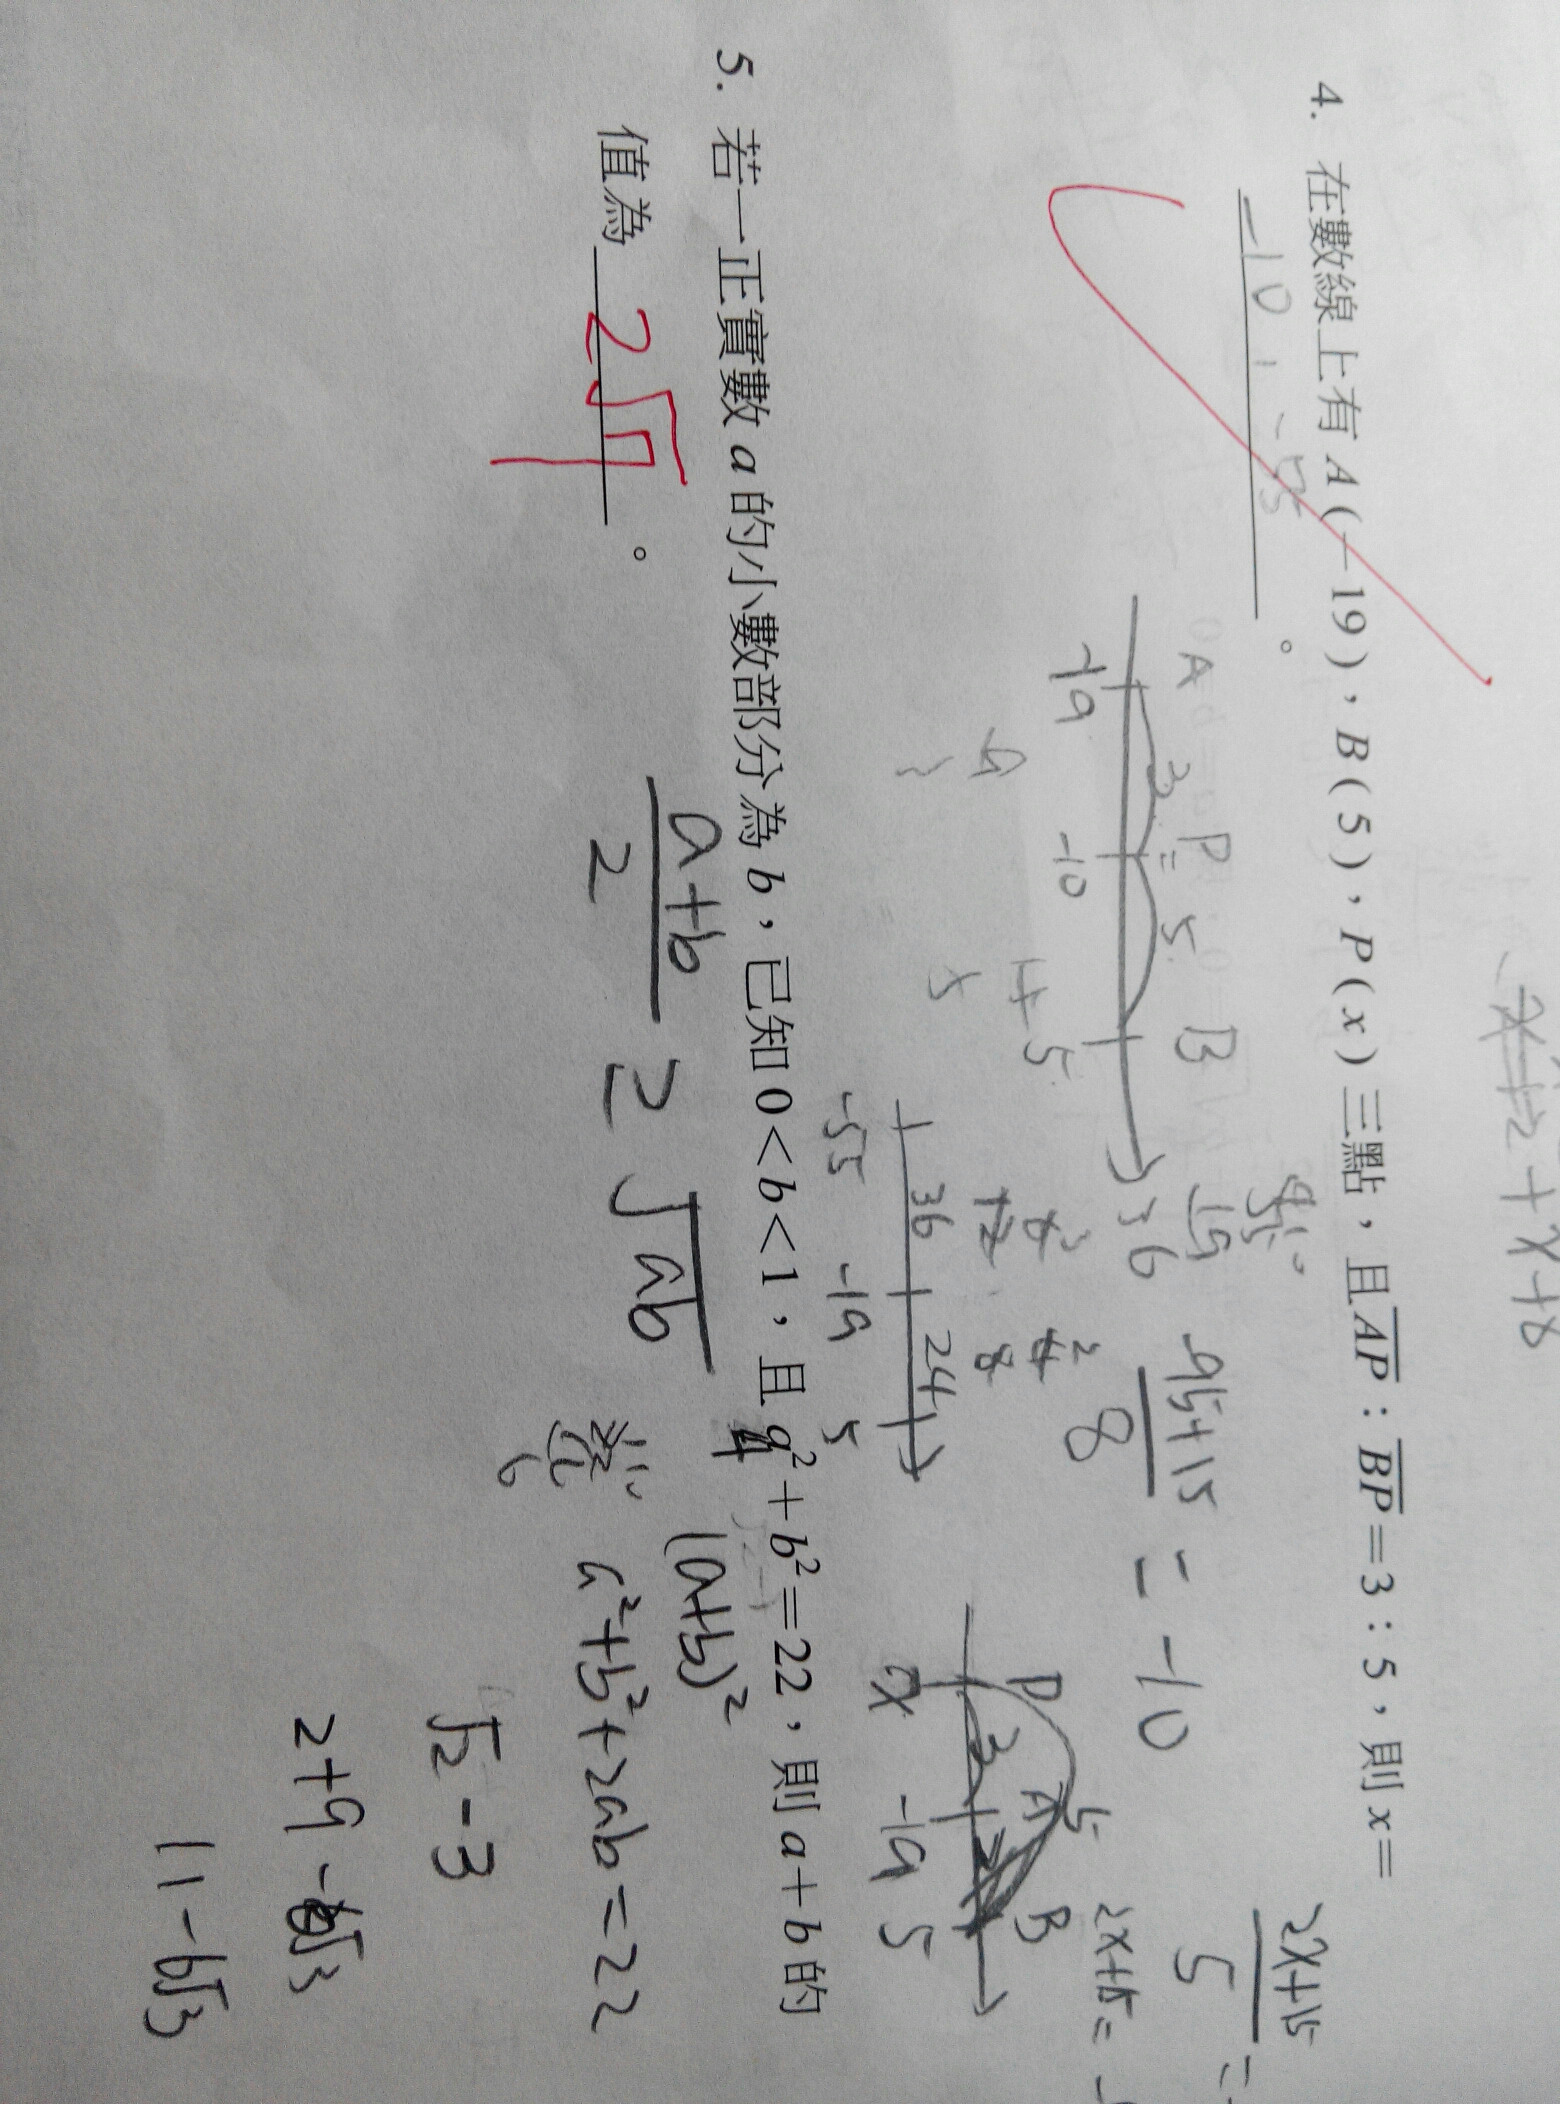 4. 在數線上有A(－19)，B(5)，P(x)三點，且AP：BP＝3：5，則x＝
-10，-55。
A 3 P = 5 B
-19 -10 5
36
-95+15
8
= -10
2x+15
5
2x+15=
-55 36 -19 24 5
P 3 A 5 B
x -19 5
5. 若一正實數a的小數部分為b，已知0<b<1，且a²＋b²＝22，則a＋b的
值為 2√7。
a+b
2
≥ √ab
(a+b)²
a²+b²+2ab=22
√2-3
2+9-6√3
11-6√3